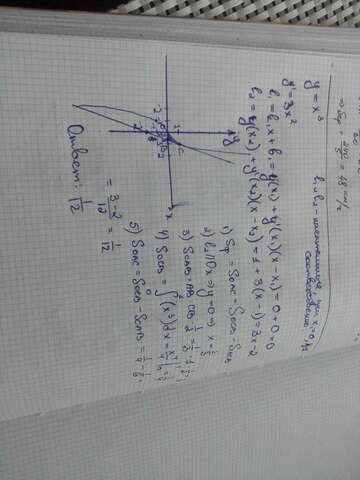 => υср = = 48 км/ч
y = x³
l₁ и l₂ - касательные при x₁=0, x₂
соответственно
y' = 3x²
l₁ = k₁x + b₁ = y(x₁) + y'(x₁)(x - x₁) = 0 + 0 = 0
l₂ = y(x₂) + y'(x₂)(x - x₂) = 1 + 3(x - 1) = 3x - 2
1) Sф = SOAC = SOCB - SCAB
2) l₂ ∩ Ox => y = 0 => x = 2/3
3) SCAB = AB · CB · 1/2 = 1/3 · 1 · 1/2 = 1/6
4) SOCB = ∫(x³)dx = x⁴/4 = 1/4
5) SOAC = SOCB - SCAB = 1/4 - 1/6 =
= (3-2)/12 = 1/12
y
x
C
Ответ: 1/12